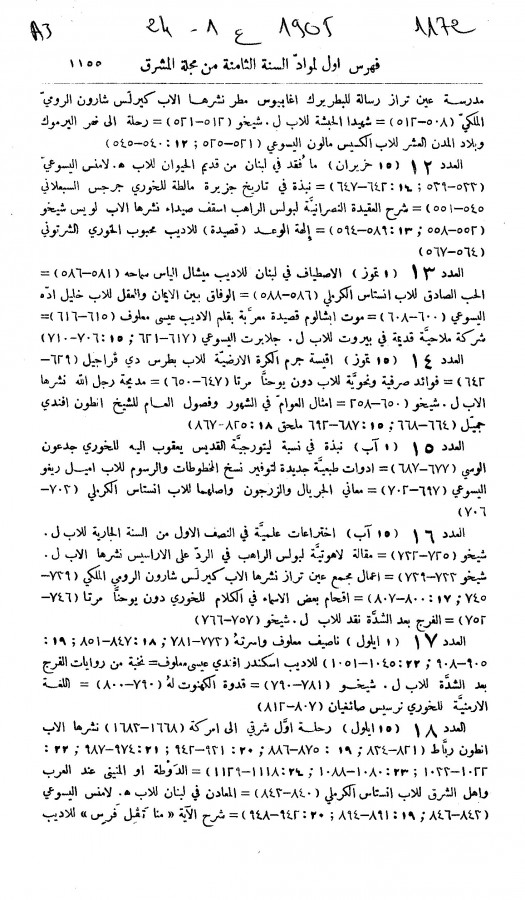 A3 24 - 1 ع 1905 1172
فهرس اول لموادّ السنة الثامنة من مجلة المشرق ١١٥٥
مدرسة عين تراز رسالة للبطريرك اغابيوس مطر نشرها الاب كيرلّس شارون الروميّ
الملكيّ (٥٠٨–٥١٢) = شهيدا الحبشة للاب ل. شيخو (٥١٢–٥٢١) = رحلة الى نهر اليرموك
وبلاد المدن العشر للاب الكسيس مالون اليسوعي (٥٢١–٥٢٥; ١٢: ٥٤٠–٥٤٥)
العدد ١٢ (١٥ حزيران) ما فُقد في لبنان من قديم الحيوان للاب ه. لامنس اليسوعيّ
(٥٢٢–٥٣٩; ١٤: ٦٤٢–٦٤٧) = نبذة في تاريخ جزيرة مالطة للخوري جرجس السبعلاني
(٥٤٥–٥٥١) = شرح العقيدة النصرانيَّة لبولس الراهب اسقف صيداء نشرها الاب لويس شيخو
(٥٥٢–٥٥٨; ١٣: ٥٨٩–٥٩٤) = إلهة الوعد (قصيدة) للاديب محبوب الخوري الشرتوني
(٥٦٤–٥٦٧)
العدد ١٣ (١ تموز) الاصطياف في لبنان للاديب ميشال الياس سماحه (٥٨١–٥٨٦) =
الحب الصادق للاب انستاس الكرملي (٥٨٦–٥٨٨) = الوفاق بين الايمان والعقل للاب خليل اده
اليسوعي (٦٠٠–٦٠٨) = موت ابشالوم قصيدة معرَّبة بقلم الاديب عيسى معلوف (٦١٥–٦١٦) =
شركة ملاحية قديمة في بيروت للاب ل. جلابرت اليسوعي (٦١٧–٦٢١; ١٥: ٧٠٦–٧١٠)
العدد ١٤ (١٥ تموز) اقيسة جرم الكرة الارضيَّة للاب بطرس دي فراجيل (٦٢٩–
٦٤٢) = فوائد صرفية ونحويَّة للاب دون يوحنَّا مرتا (٦٤٧–٦٥٠) = مديحة رجل الله نشرها
الاب ل. شيخو (٦٥٠–٦٥٨) = امثال العوامّ في الشهور وفصول العام للشيخ انطون افندي
جميّل (٦٦٤–٦٦٨; ١٥: ٦٨٧–٦٩٢ ملحق ١٨: ٨٢٥–٨٦٧)
العدد ١٥ (١ آب) نبذة في نسبة ليتورجيَّة القديس يعقوب اليه للخوري جدعون
الوسي (٦٧٧–٦٨٧) = ادوات طبعيَّة جديدة لتوفير نسخ المخطوطات والرسوم للاب اميل ريغو
اليسوعي (٦٩٧–٧٠٢) = معاني الجريال والزرجون واصلهما للاب انستاس الكرملي (٧٠٣–
٧٠٦
العدد ١٦ (١٥ آب) اختراعات علميَّة في النصف الاول من السنة الجارية للاب ل.
شيخو (٧٢٥–٧٢٢) = مقالة لاهوتيَّة لبولس الراهب في الردّ على الاراسيس نشرها الاب ل.
شيخو ٧٢٢–٧٢٩) = اعمال مجمع عين تراز نشرها الاب كيرلّس شارون الرومي الملكي (٧٢٩–
٧٤٥; ١٧: ٨٠٠–٨٠٧) = اقحام بعض الاسماء في الكلام للخوري دون يوحنَّا مرتا (٧٤٦–
٧٥٢) = الفرج بعد الشدَّة نقد للاب ل. شيخو (٧٥٧–٧٦٦)
العدد ١٧ (١ ايلول) ناصيف معلوف واسرتهُ (٧٧٣–٧٨١; ١٨: ٨٤٧–٨٥١; ١٩:
٩٠٥–٩٠٨; ٢٢: ١٠٤٥–١٠٥١) للاديب اسكندر افندي عيسى معلوف = نخبة من روايات الفرج
بعد الشدَّة للاب ل. شيخو (٧٨١–٧٩٠) = قدوة الكهنوت لهُ (٧٩٠–٨٠٠) = اللغة
الارمنيَّة للخوري نرسيس صائغيان (٨٠٧–٨١٢)
العدد ١٨ (١٥ ايلول) رحلة اوَّل شرقي الى امركة (١٦٦٨–١٦٨٣) نشرها الاب
انطون ربَّاط (٨٢١–٨٣٤; ١٩: ٨٧٥–٨٨٦; ٢٠: ٩٣١–٩٤٢; ٢١: ٩٧٤–٩٨٧; ٢٢:
١٠٢٢–١٠٣٣; ٢٣: ١٠٨٠–١٠٨٨; ٢٤: ١١١٨–١١٢٩) = الدَوْطة او المنيّ عند العرب
واهل الشرق للاب انستاس الكرملي (٨٤٠–٨٤٣) = المعادن في لبنان للاب ه. لامنس اليسوعي
(٨٤٣–٨٤٦; ١٩: ٨٩١–٨٩٤; ٢٠: ٩٤٢–٩٤٨) = شرح الآية « منا ثقيل فرس » للاديب